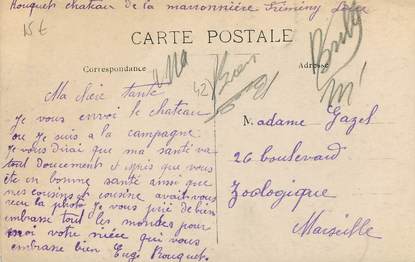 Rouquet chateau de la marronnière Firminy Loire
15 €
CARTE POSTALE
Correspondance
Adresse
42
Ma chère tante
Je vous envoi le chateau
ou je suis a la campagne
Je vous dirai que ma santé va
tout doucement et espis que vous
ete en bonne santé ainsi que
mes cousins et cousine avait vous
recu la photo Je vous prie de bien
embrassé tout les mondes pour
moi votre niéce qui vous
embrasse bien Eugé Rouquet
Madame Gazel
26 boulevard
Zoologique
Marseille